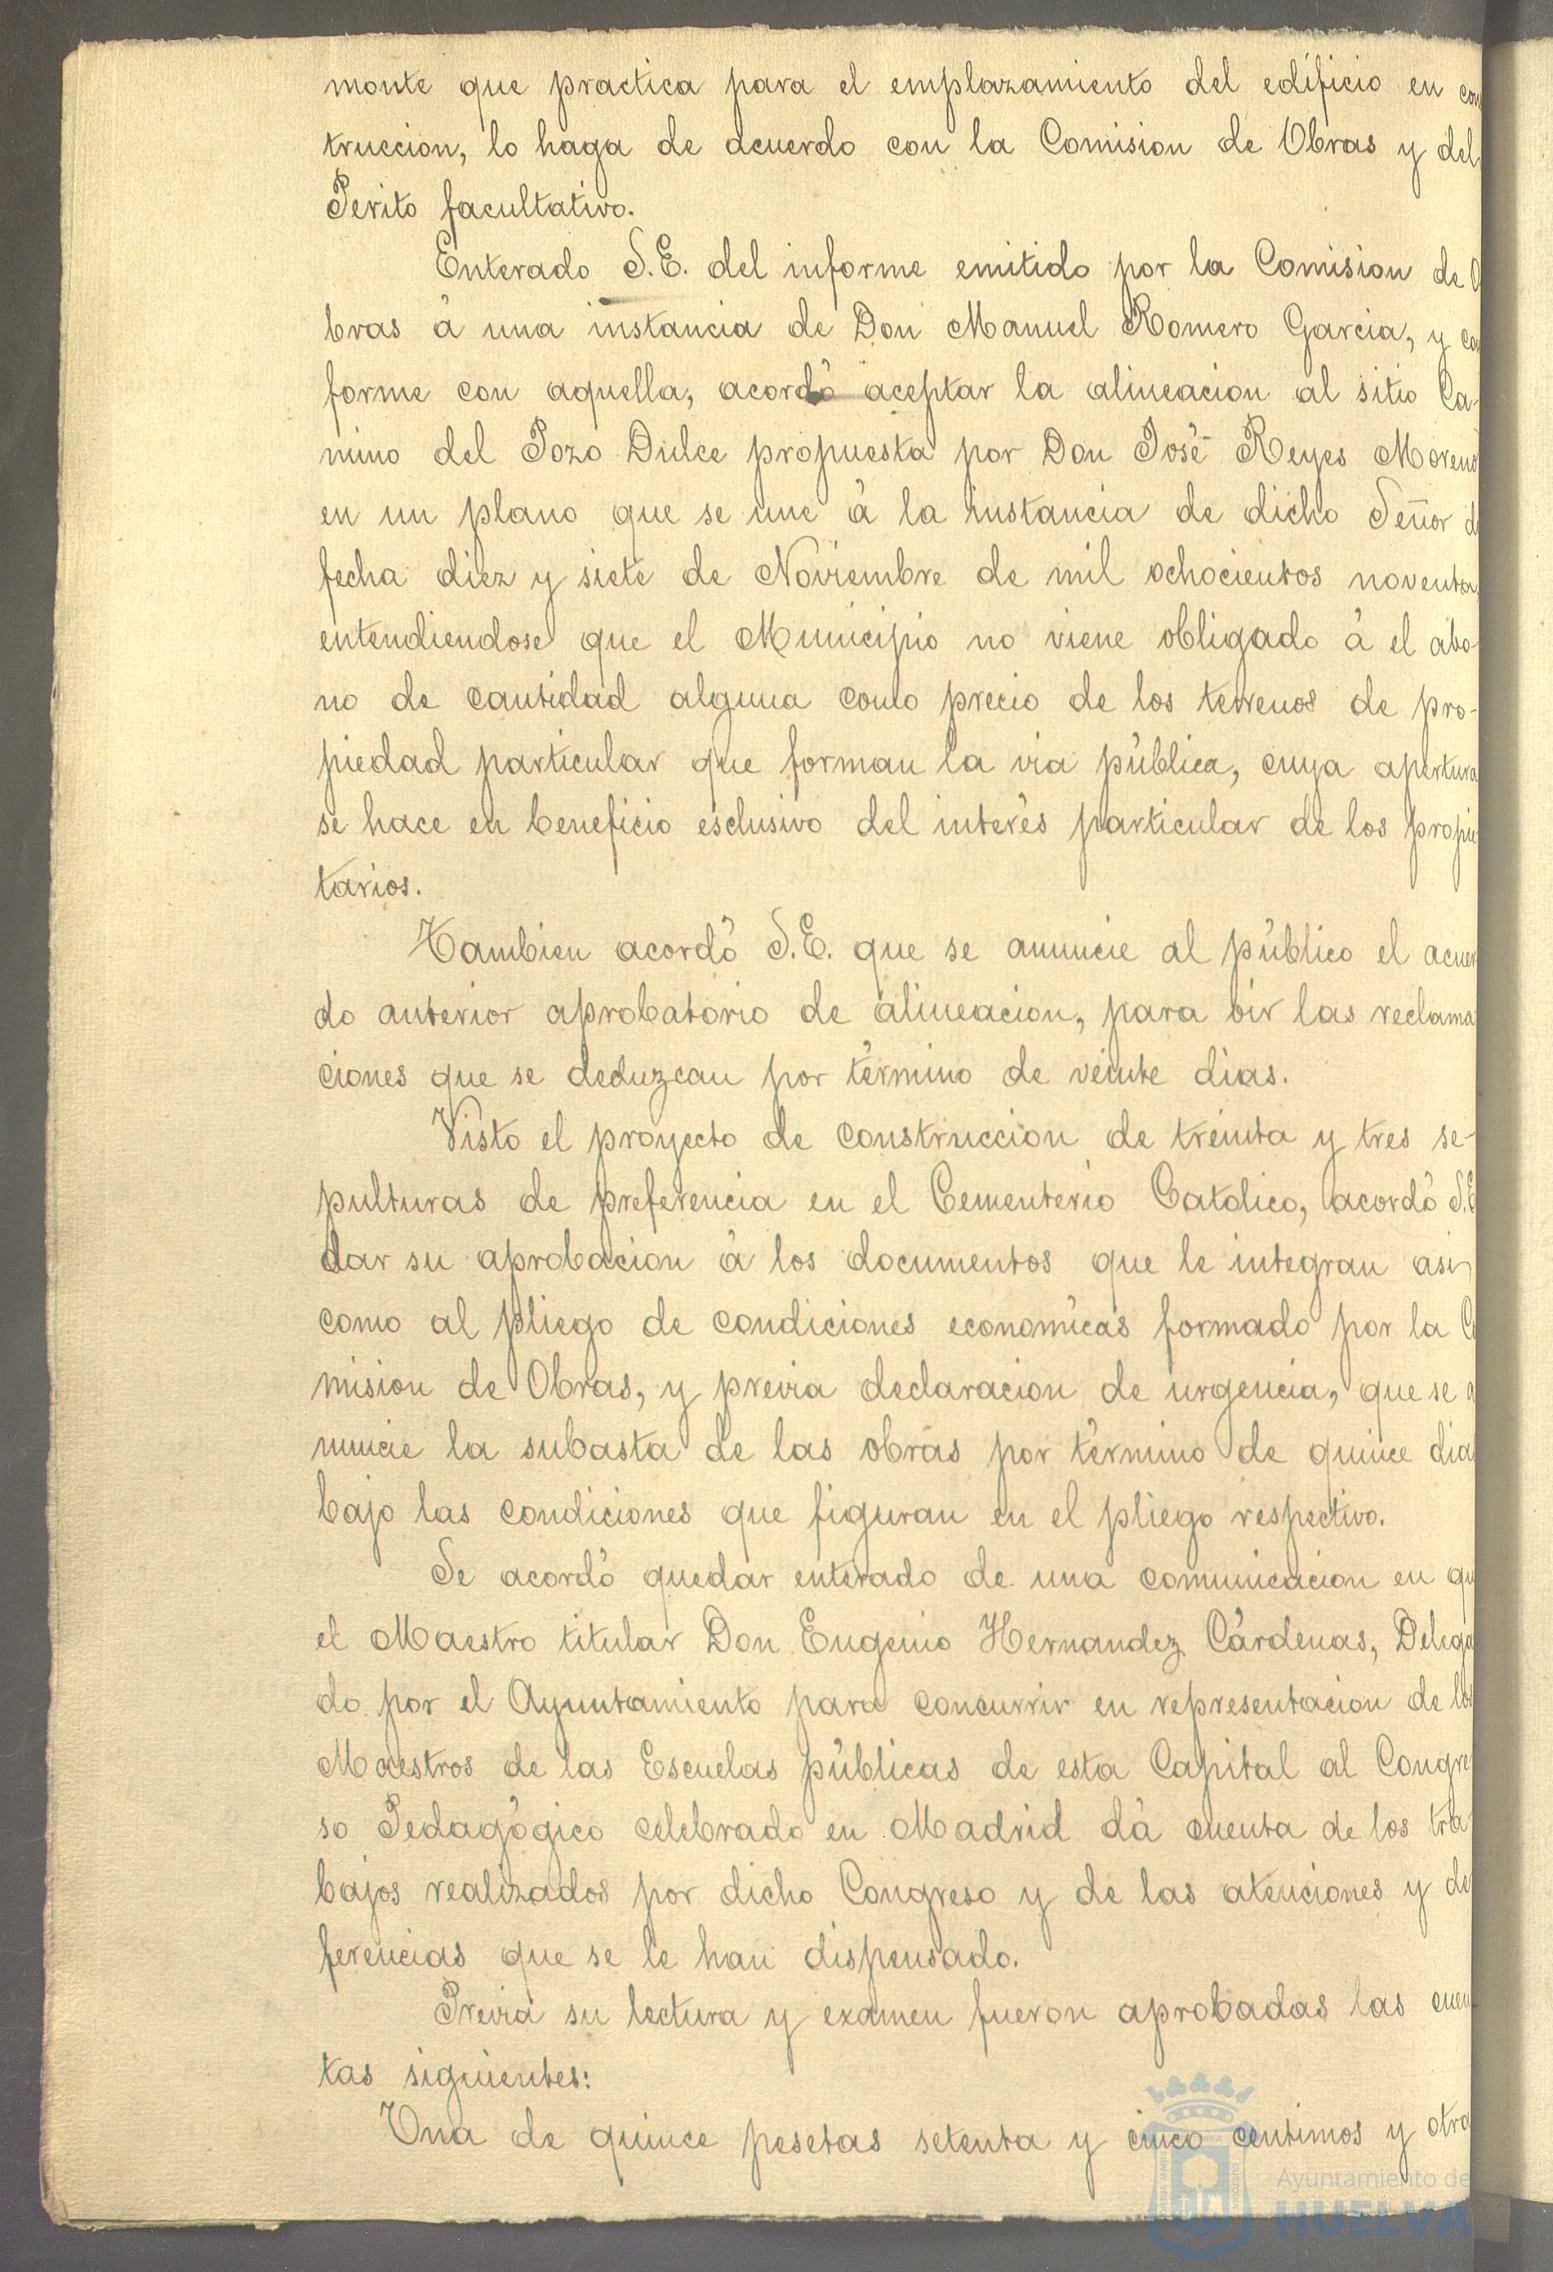 monte que practica para el emplazamiento del edificio en con
truccion, lo haga de acuerdo con la Comision de Obras y del
Perito facultativo.
Enterado S.E. del informe emitido por la Comision de O
bras á una instancia de Don Manuel Romero Garcia, y con
forme con aquella, acordó aceptar la alineacion al sitio Ca-
mino del Pozo Dulce propuesta por Don José Reyes Moreno
en un plano que se une á la instancia de dicho Señor de
fecha diez y siete de Noviembre de mil ochocientos noventa,
entendiendose que el Municipio no viene obligado á el abo-
no de cantidad alguna como precio de los terrenos de pro-
piedad particular que forman la via pública, cuya apertura
se hace en beneficio esclusivo del interés particular de los propie
tarios.
Tambien acordó S.E. que se anuncie al público el acuer
do anterior aprobatorio de alineacion, para oir las reclama
ciones que se deduzcan por término de veinte dias.
Visto el proyecto de construccion de treinta y tres se-
pulturas de preferencia en el Cementerio Católico, acordó S.E
dar su aprobacion á los documentos que le integran asi
como al pliego de condiciones económicas formado por la Co
mision de Obras, y previa declaracion de urgencia, que se a
nuncie la subasta de las obras por término de quince dias
bajo las condiciones que figuran en el pliego respectivo.
Se acordó quedar enterado de una comunicacion en que
el Maestro titular Don Eugenio Hernandez Cárdenas, Delega
do por el Ayuntamiento para concurrir en representacion de los
Maestros de las Escuelas públicas de esta Capital al Congre
so Pedagógico celebrado en Madrid dá cuenta de los tra
bajos realizados por dicho Congreso y de las atenciones y de
ferencias que se le han dispensado.
Previa su lectura y examen fueron aprobadas las cuen
tas siguientes:
Una de quince pesetas setenta y cinco centimos y otra
Ayuntamiento de
HUELVA